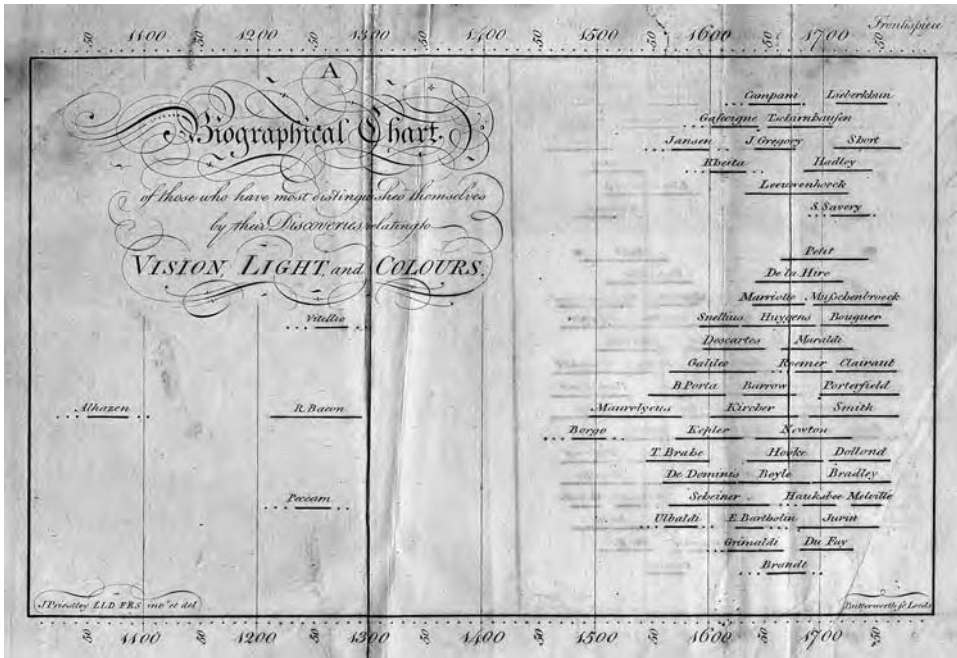 Frontispiece
50 1100 50 1200 50 1300 50 1400 50 1500 50 1600 50 1700 50
A
Biographical Chart,
of those who have most distinguished themselves
by their Discoveries relating to
VISION, LIGHT, and COLOURS.
Campani Lieberkhun
Gascoigne Tschirnhausen
Jansen J. Gregory Short
Rheita Hadley
Leeuwenhoeck
S. Savery
Petit
De la Hire
Marriotte Musschenbroeck
Vitellio Snellius Huygens Bouguer
Descartes Maraldi
Galileo Roemer Clairaut
B. Porta Barrow Porterfield
Alhazen R. Bacon Maurolycus Kircher Smith
Borgo Kepler Newton
T. Brahe Hooke Dollond
De Dominis Boyle Bradley
Peccam Scheiner Hauksbee Melville
Ulbaldi E. Bartholin Jurin
Grimaldi Du Fay
Brandt
J Priestley LLD FRS invt. et del Butterworth sc Leeds
50 1100 50 1200 50 1300 50 1400 50 1500 50 1600 50 1700 50